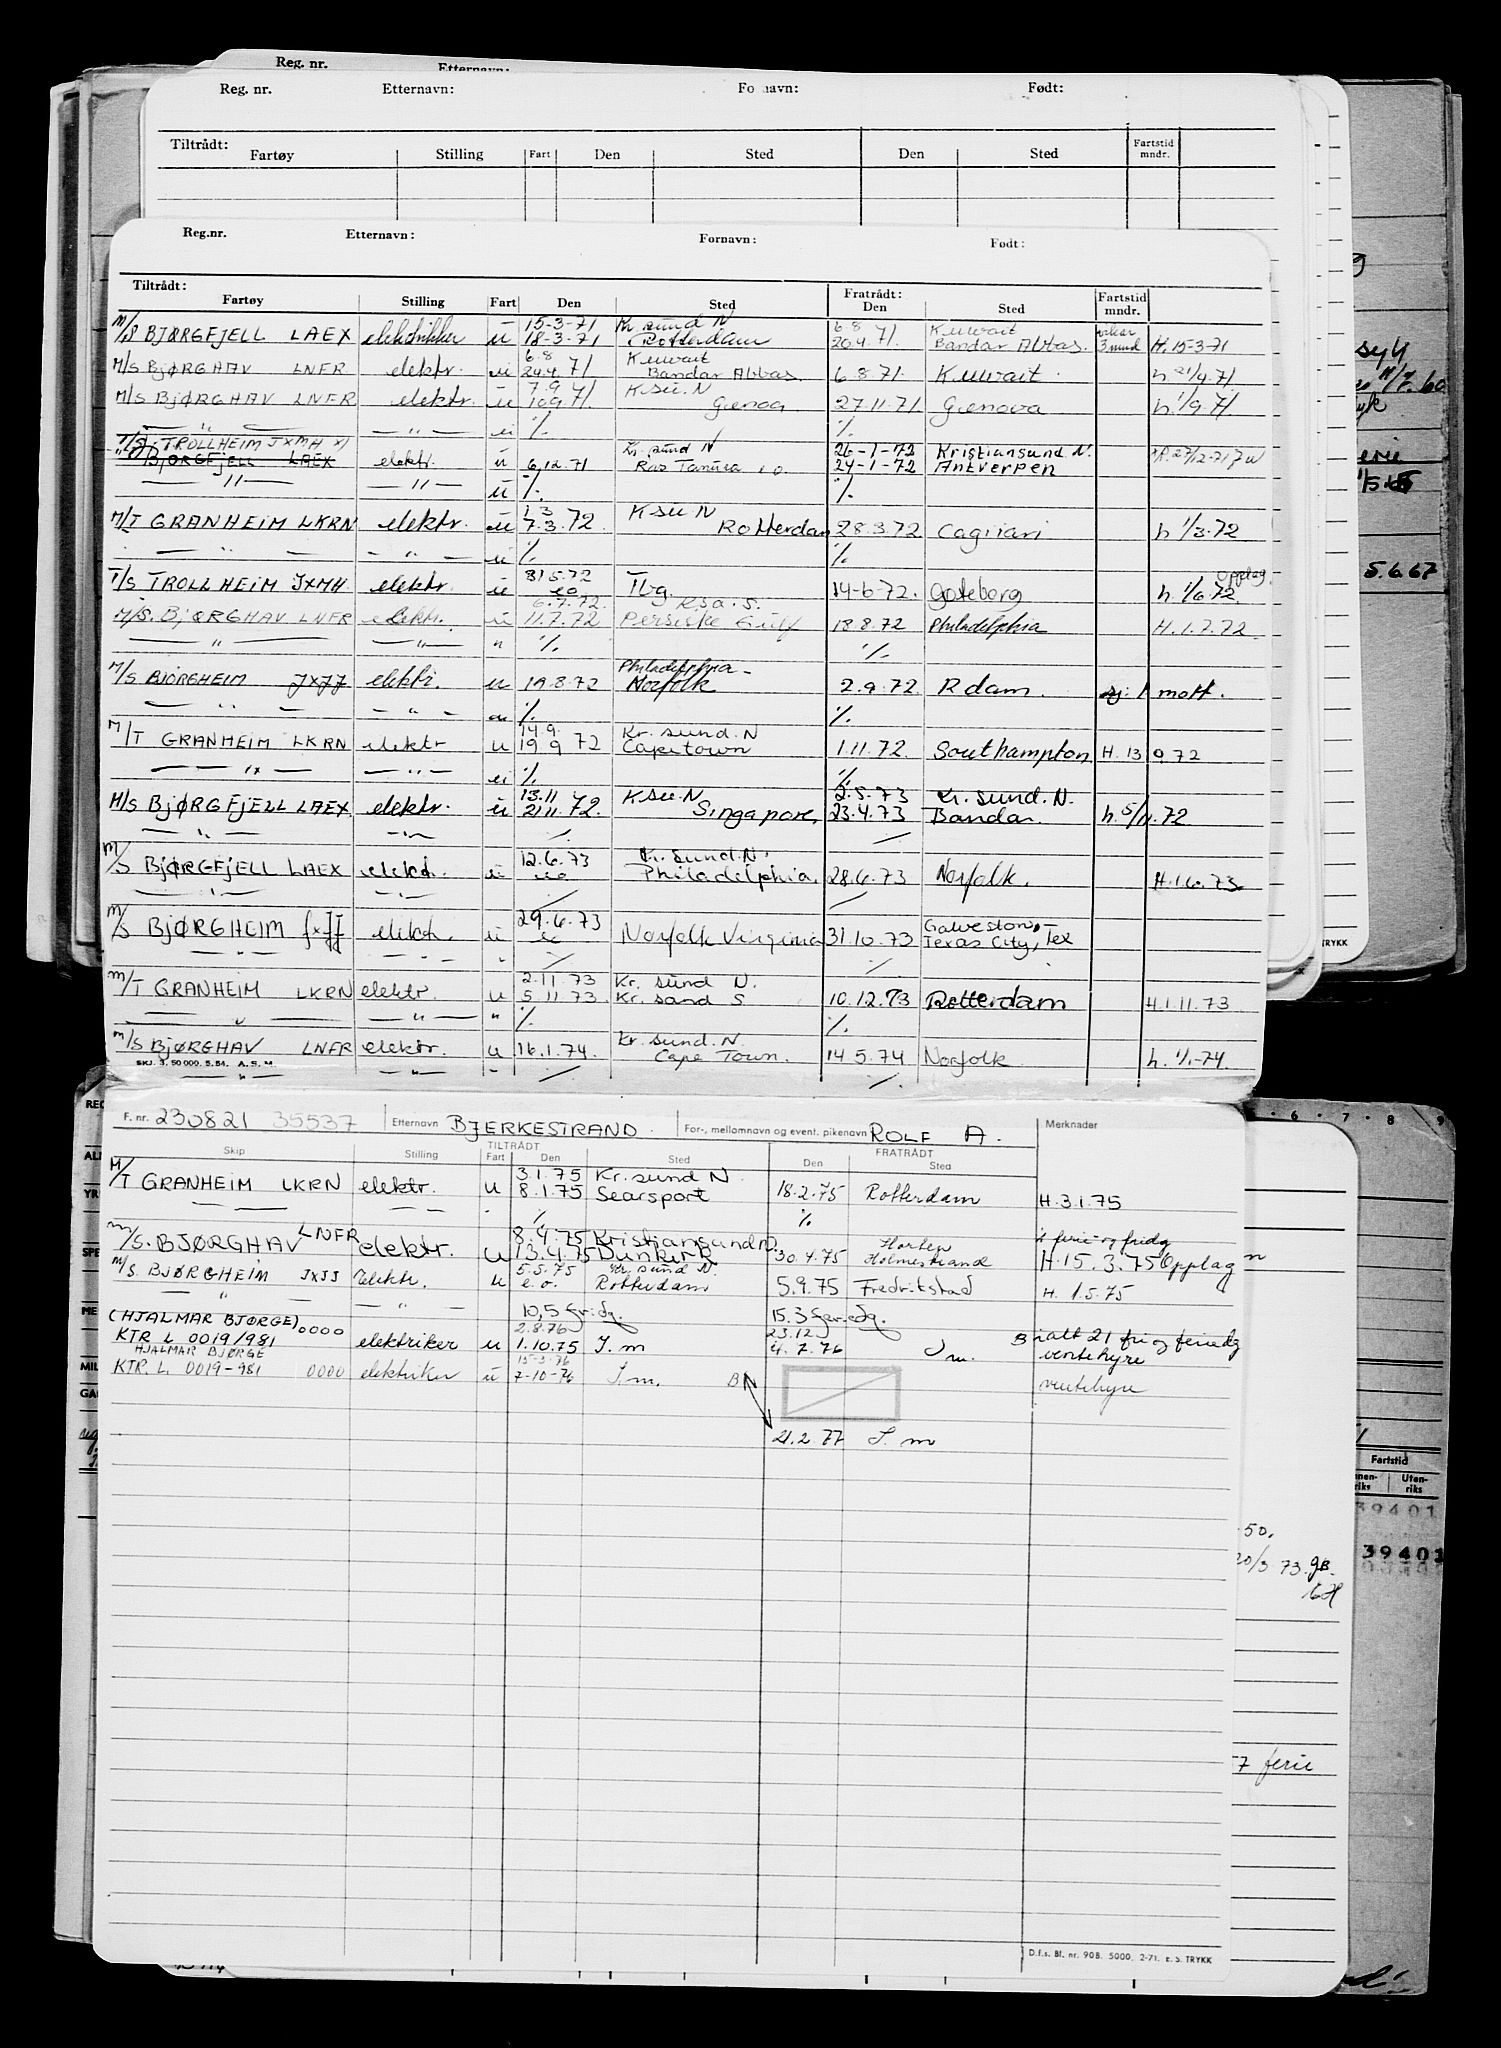 Reg. nr. Etternavn:
Reg. nr. Etternavn: Fo navn: Født:
Tiltrådt:
Fartøy Stilling Fart Den Sted Den Sted Fartstid mndr.
Reg.nr. Etternavn: Fornavn: Født:
Tiltrådt: Fratrådt:
Fartøy Stilling Fart Den Sted Den Sted Fartstid mndr.
15-3-71 Kr. sund N 6.8 Kuwait
M/S BJØRGFJELL LAEX elektriker u 18-3-71 Rotterdam 20.4.71. Bandar Abbas. 3 mnd H. 15-3-71
6.8 Kuwait
M/S BJØRGHAV LNFR elektr. u 24.4.71 Bandar Abbas 6.8.71. Kuwait. h. 21/4.71.
7.9 K.su.N
M/S BJØRGHAV LNFR elektr. u 10.9.71. Genoa 27.11.71. Genova h. 1/9.71
— " — — " — u % %
T/S TROLLHEIM JXMH x) Kr. sund N 26-1-72 Kristiansund N.
BJØRGFJELL LAEX elektr. u 6.12.71 Ras Tanura 24-1-72 Antverpen
— " — — " — u % %
1.3 K.su.N
M/T GRANHEIM LKRN elektr. u 7.3.72 Rotterdam 28.3.72 Cagliari h 1/3.72
— " — — " — u % %
31.5.72 opplag
T/S TROLLHEIM JXMH. elektr. u eo Tbg. 14-6-72. Gøteborg h. 1/6.72.
6.7.72. Ksa. S.
M/S. BJØRGHAV LNFR elektr. u 11.7.72 Persiske Gulf 18.8.72 Philadelphia H. 1.7.72
— " — — " — " % %
Philadelphia-
M/S BJØRGHEIM JXJJ elektr. u 19.8.72 Norfolk 2.9.72 R.dam. mott.
— " — — " — u % %
14.9. Kr. sund. N
M/T GRANHEIM LKRN elektr u 19 9 72 Capetown 1.11.72. Southampton H. 13 9 72
— " — — " — u % %
13.11 K.su.N 2.5.73 Kr. Sund. N.
M/S BJØRGFJELL LAEX. elektr. u 21.11.72. Singapore, 23.4.73 Bandar. h. 5/11.72
— " — — " —
12.6.73 Kr. sund. N.
M/S BJØRGFJELL LAEX elektr. u eo Philadelphia. 28.6.73 Norfolk. H. 1.6.73
— " — — " —
29.6.73 Galveston,
M/S BJØRGHEIM JXJJ elektr. u Norfolk Virginia 31.10.73 Texas City, Tex
— " — — " — "
2.11.73 Kr. sund N.
M/T GRANHEIM LKRN elektr. u 5.11.73 Kr. sand S 10.12.73 Rotterdam H. 1.11.73
— " — — " — " % %
Kr. sund. N.
M/S BJØRGHAV LNFR elektr. u 16.1.74. Cape Town. 14 5.74 Norfolk h. 1/1-74.
SKJ. 3. 50 000. 5.54. A. S. M.
— " — — " — "
F. nr. 230821 35537 Etternavn BJERKESTRAND For-, mellomnavn og event. pikenavn ROLF A. Merknader
TILTRÅDT FRATRÅDT
Skip Stilling Fart Den Sted Den Sted
3.1.75 Kr. sund N.
M/T GRANHEIM LKRN elektr. u 8.1.75 Searsport 18.2.75 Rotterdam H. 3.1.75
% %
8.4.75 Kristiansund N. Horten ferie og fridg
M/S. BJØRGHAV LNFR elektr. u 13.4.75 Dunkirk 30.4.75 Holmestrand H. 15.3.75 Opplag
5.5.75 Kr. sund N.
M/S. BJØRGHEIM JXJJ elektr. u e.o. Rotterdam 5.9.75 Fredrikstad H. 1.5.75
— " — — " —
10,5 fridg. 15.3 feriedg.
(HJALMAR BJØRGE) 2.8.76 23.12
KTR L 0019/981 0000 elektriker u 1.10.75 I. m 4.7.76 I m. B ialt 21 fri og feriedg
HJALMAR BJØRGE 15-3-76 ventehyre
KTR. L. 0019-981 0000 elektriker u 7-10-76 I. m. B ventehyre
21.2.77 I. m
D.f.s. Bl. nr. 90B. 5000. 2-71. E. S. TRYKK
5.6.67
TRYKK
6 7 8 9
Fartstid
Uten-riks
39401
39401
50.
20/3 73.
ferie